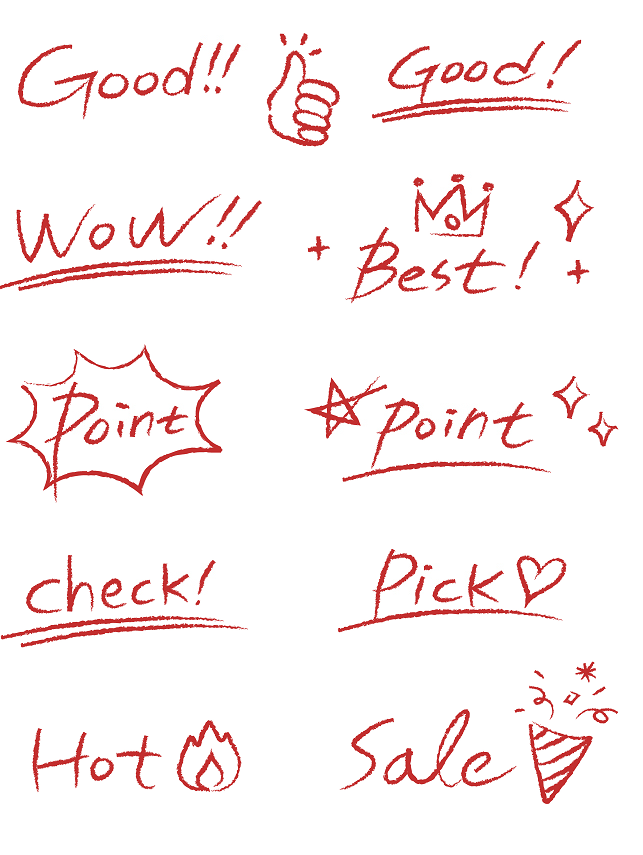 Good!!
Good!
WoW!!
Best!
Point
Point
check!
Pick
Hot
Sale